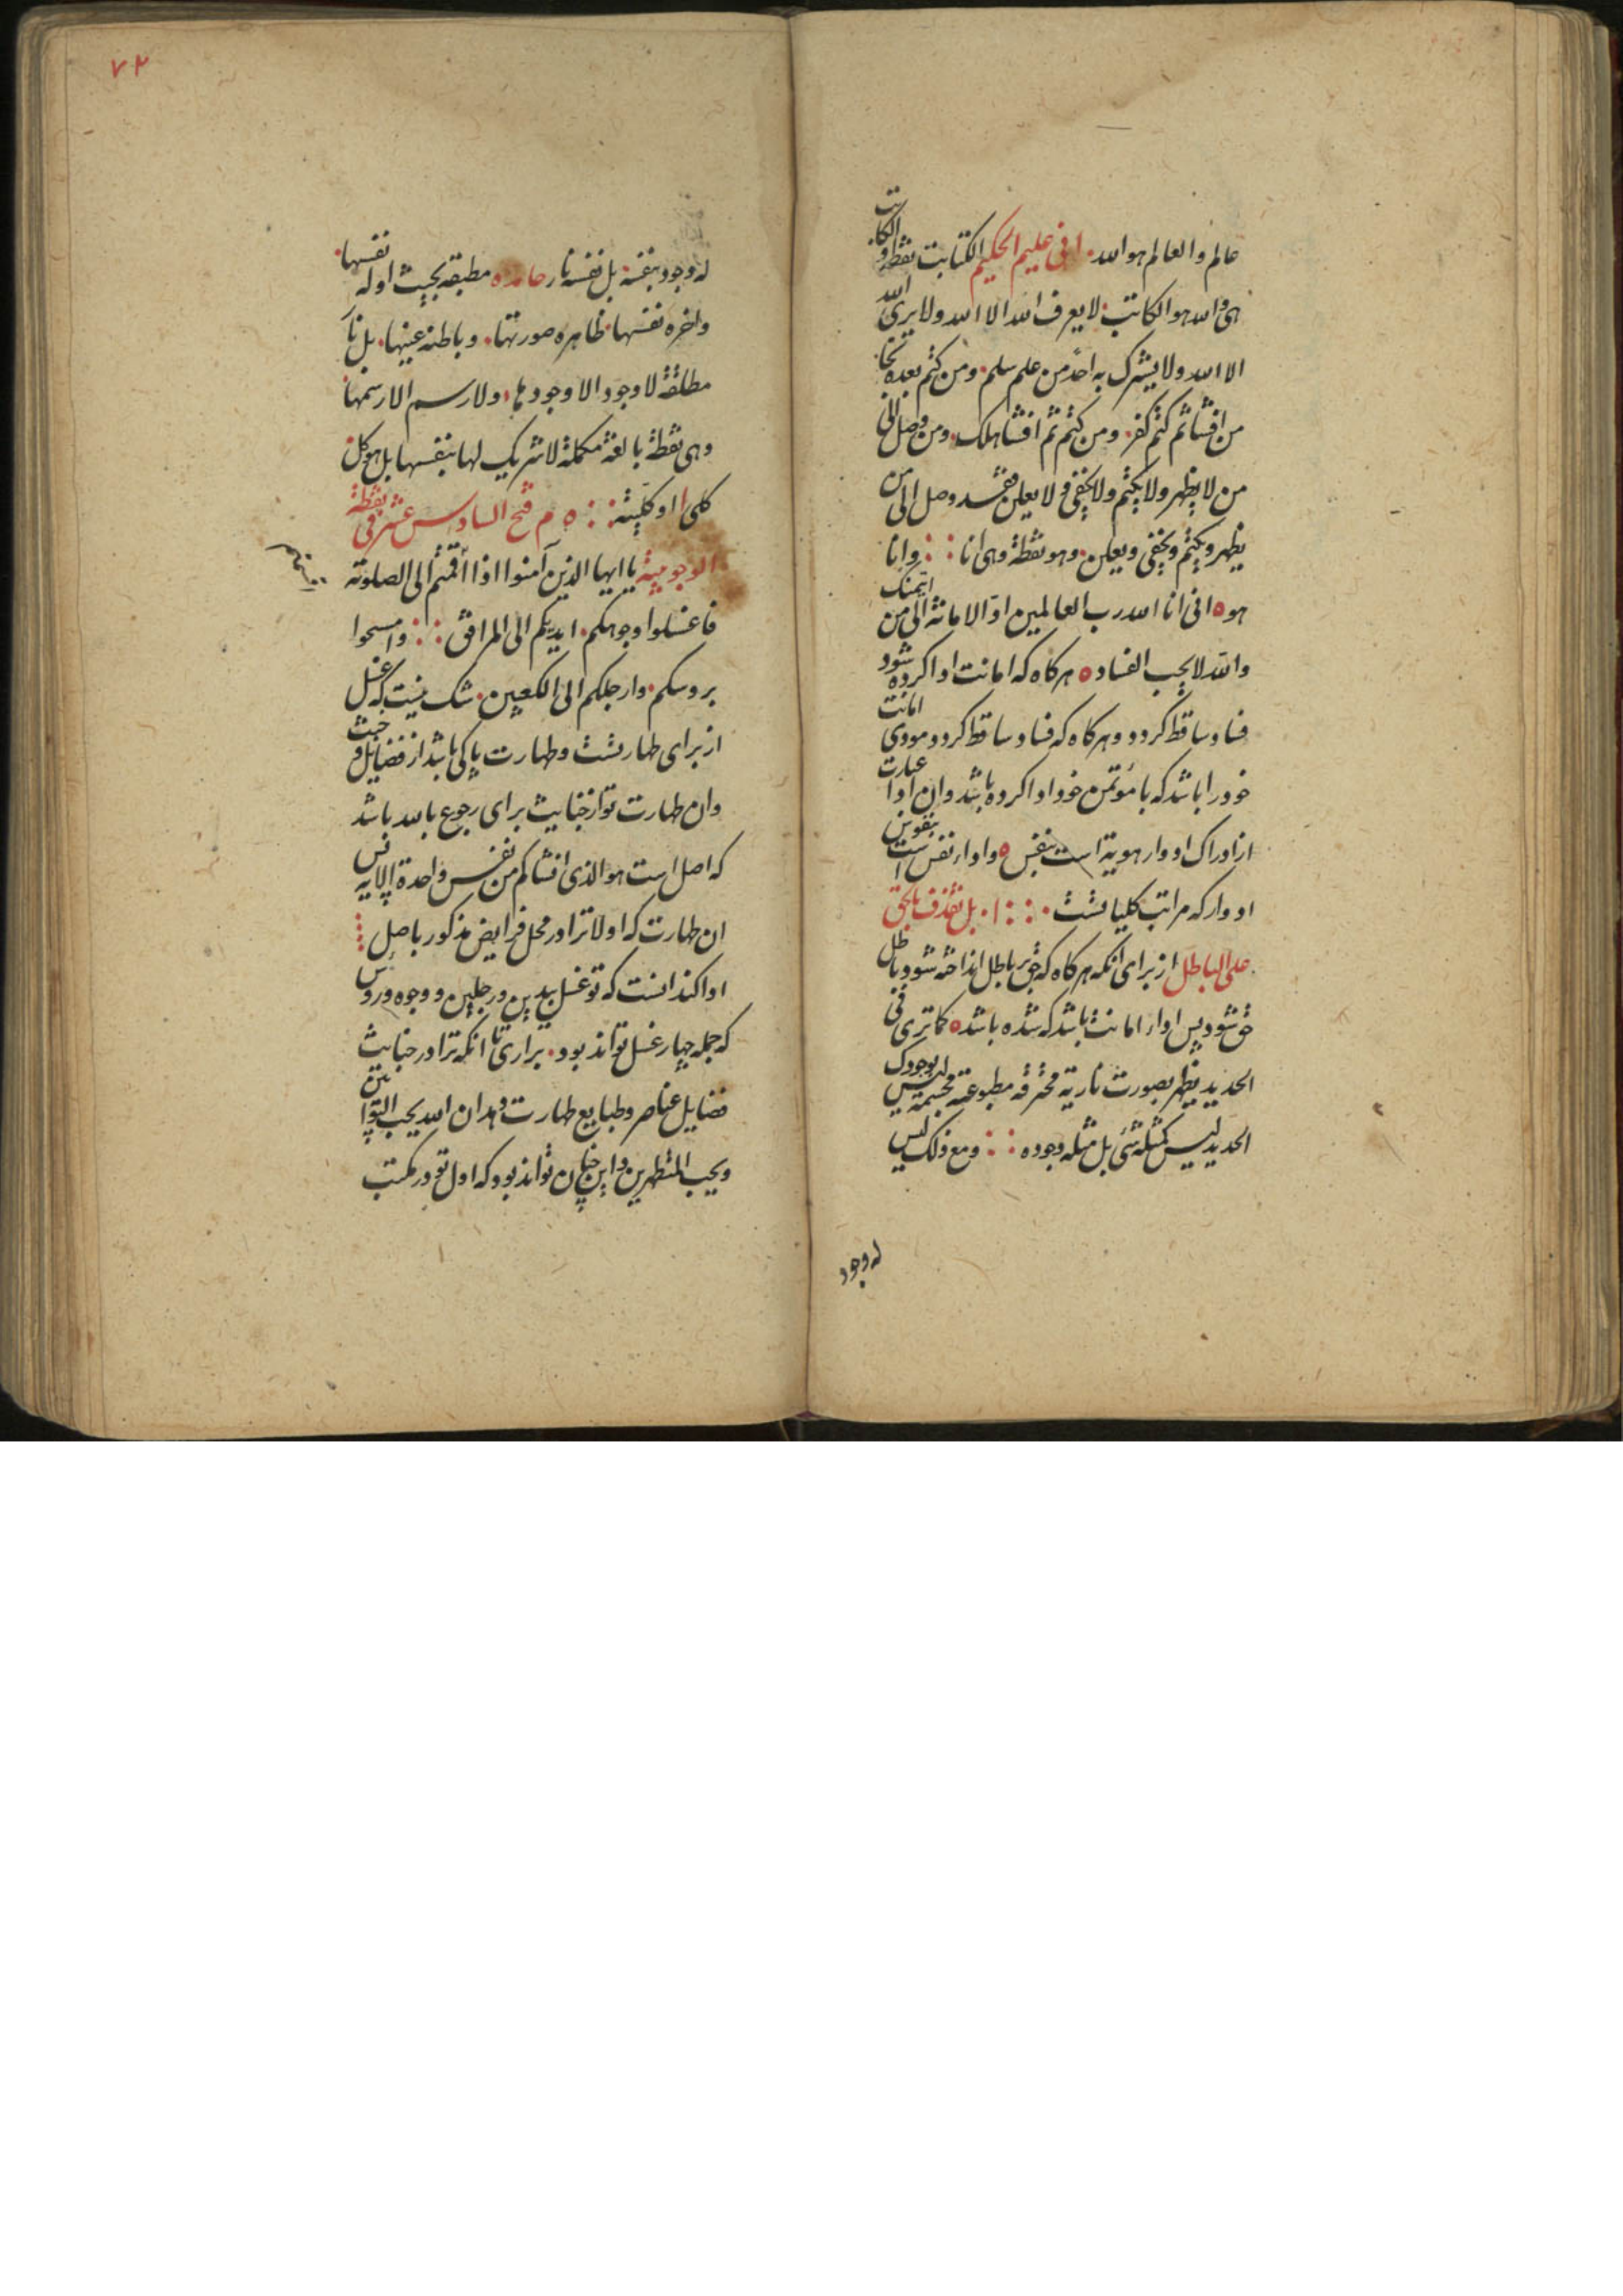 عالم والعالم هو الله. انی علیم الحکیم الکتابت نقطه و الکاتب
هی و الله هو الکاتب لا یعرف الله الا الله ولا یری الله
الا الله ولا یشرک به احد من علم سلم. ومن کتم بعده نجا
من افشا ثم کتم کفر. ومن کتم ثم افشا هلک. ومن وصل الی
من لا یظهر ولا یکتم ولا یخفی و لا یعلن فقد وصل الی من
یظهر ویکتم ویخفی ویعلن. وهو نقطة وهی انا وانا
هو ه انی انا الله رب العالمین ادّ الامانة الی من ائتمنک
والله لا یحب الفساد ه هرکاه که امانت ادا کرده شود
فساد ساقط کردد وهرکاه که فساد ساقط کردد مودی امانت
خود را باشد که با مؤتمن خود ادا کرده باشد وان ادا عبارت
از ادراک ادوار هویة است بنفس ه وادا نفس است بنفوس
ادوار که مراتب کلیاتست بل نقذف بالحق
علی الباطل از برای انکه هرکاه که حق بر باطل انداخته شود باطل
حق شود پس اداء امانت باشد که شده باشد ه کما تری فی
الحدید یظهر بصورت ناریة محترقه مطبوعة مجسمة لیس بوجودک
الحدید لیس کمثله شئ بل مثله وجوده ومع ذلک لیس
له وجود
۷۲
له وجود بنفسه. بل نفسه نار حامده مطبقه بحیث اوله نفسها.
واخره نفسها ظاهره صورتها. وباطنه عینها. بل نار
مطلقة لا وجود الا وجودها ولا رسم الا رسمها
وهی نقطة بالغة مکملة لا شریک لها بنفسها بل هو کل
کلی او کلیة ه م فتح السادس عشر فی نقطة
الوجوبیة یا ایها الذین آمنوا اذا اقمتم الی الصلوة
فاغسلوا وجوهکم. ایدیکم الی المرافق وامسحوا
بروسکم. وارجلکم الی الکعبین. شک نیست که غسل
از برای طهارتست وطهارت پاکی باشد از فضایل و خبث
وان طهارت تو از جنابیت برای رجوع بالله باشد
که اصل است هو الذی انشاکم من نفس واحدة الایه پس
ان طهارت که اولا ترا در محل فرایض مذکور باصل
ادا کند انست که تو غسل یدین ورجلین و وجوه وروس
که جمله چهار غسل تواند بود. براری تا انکه ترا در جنابیت
فضایل عناصر وطبایع طهارت دهد ان الله یحب التوابین
ویحب المتطهرین واین چنان تواند بود که اول تو در کمیت